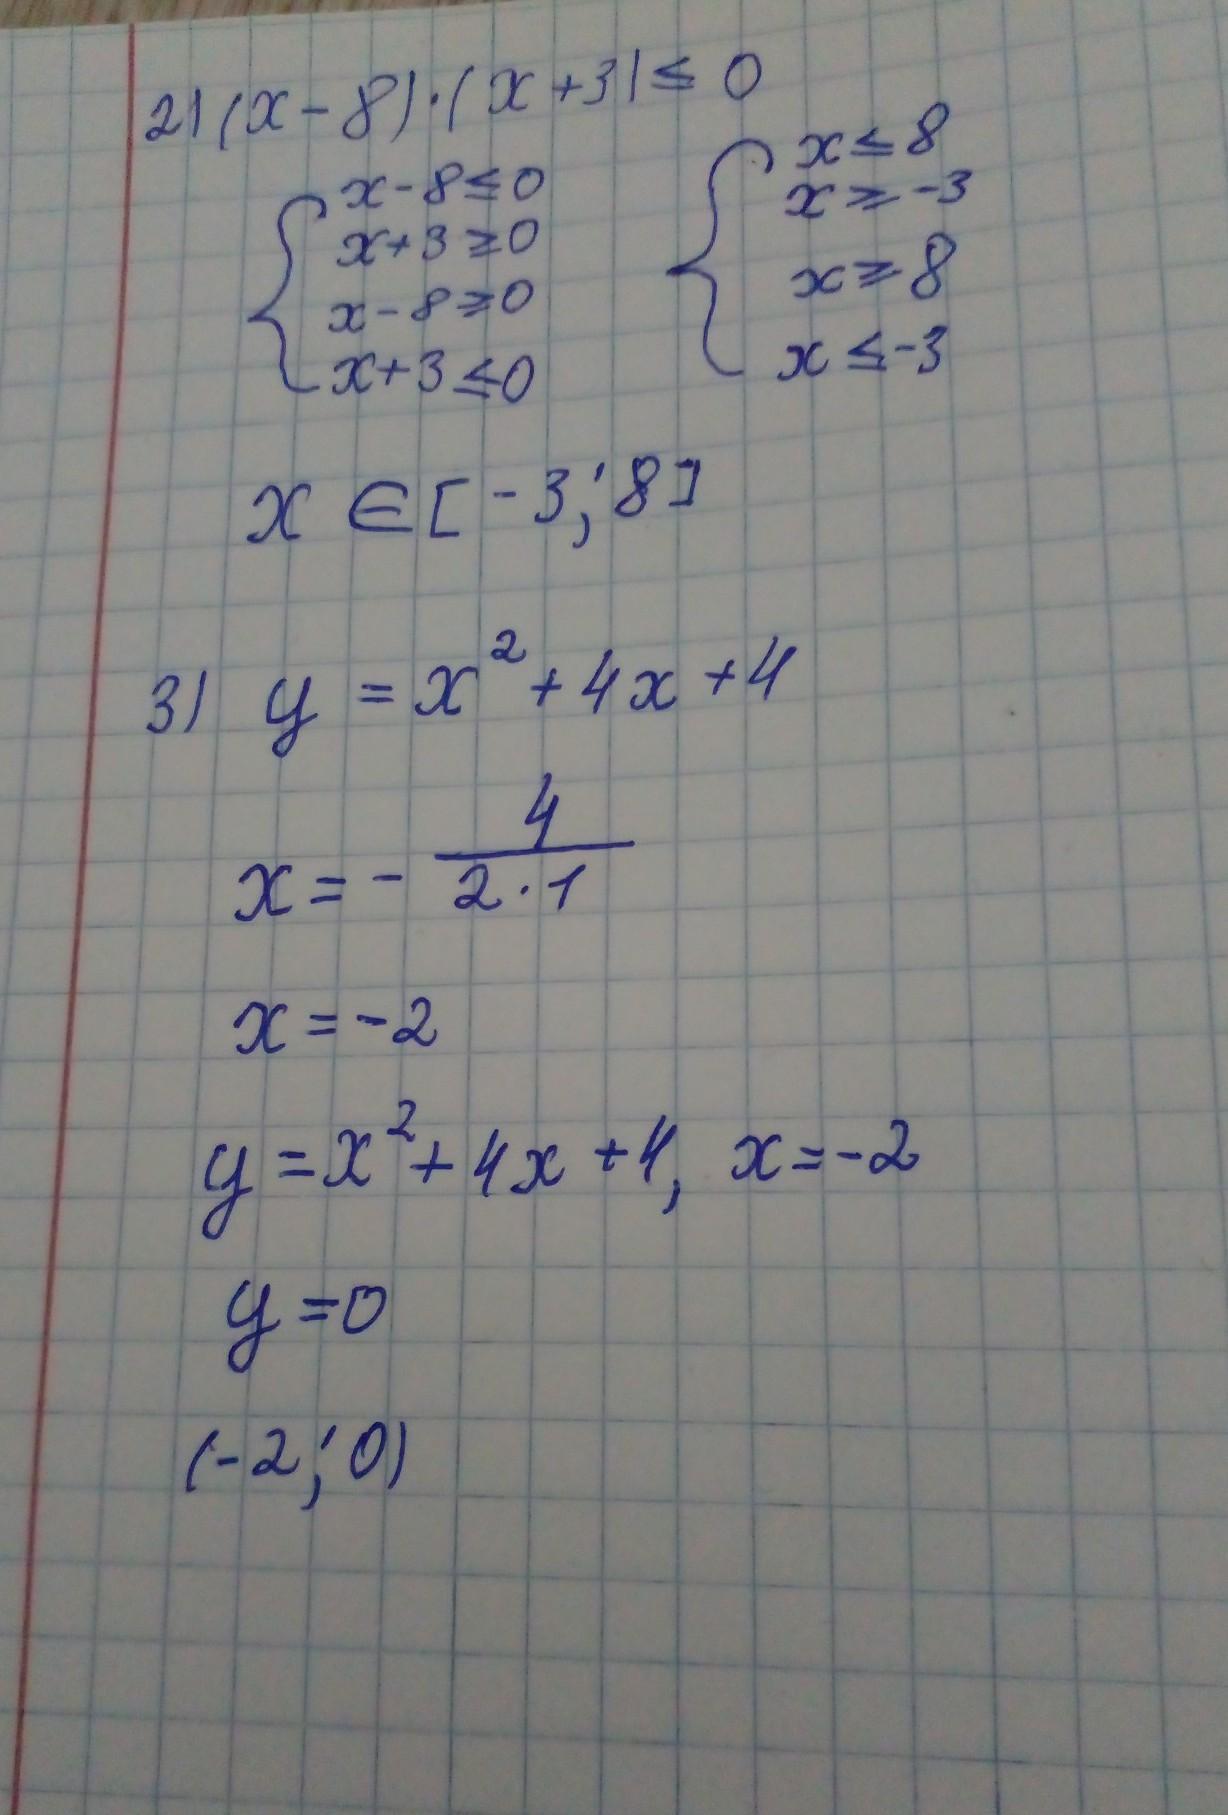 2) (x - 8) · (x + 3) ≤ 0
{ x - 8 ≤ 0 { x ≤ 8
x + 3 ≥ 0 x ≥ -3
x - 8 ≥ 0 x ≥ 8
x + 3 ≤ 0 x ≤ -3
x ∈ [ -3; 8]
3) y = x² + 4x + 4
x = - 4/(2 · 1)
x = -2
y = x² + 4x + 4, x = -2
y = 0
(-2; 0)